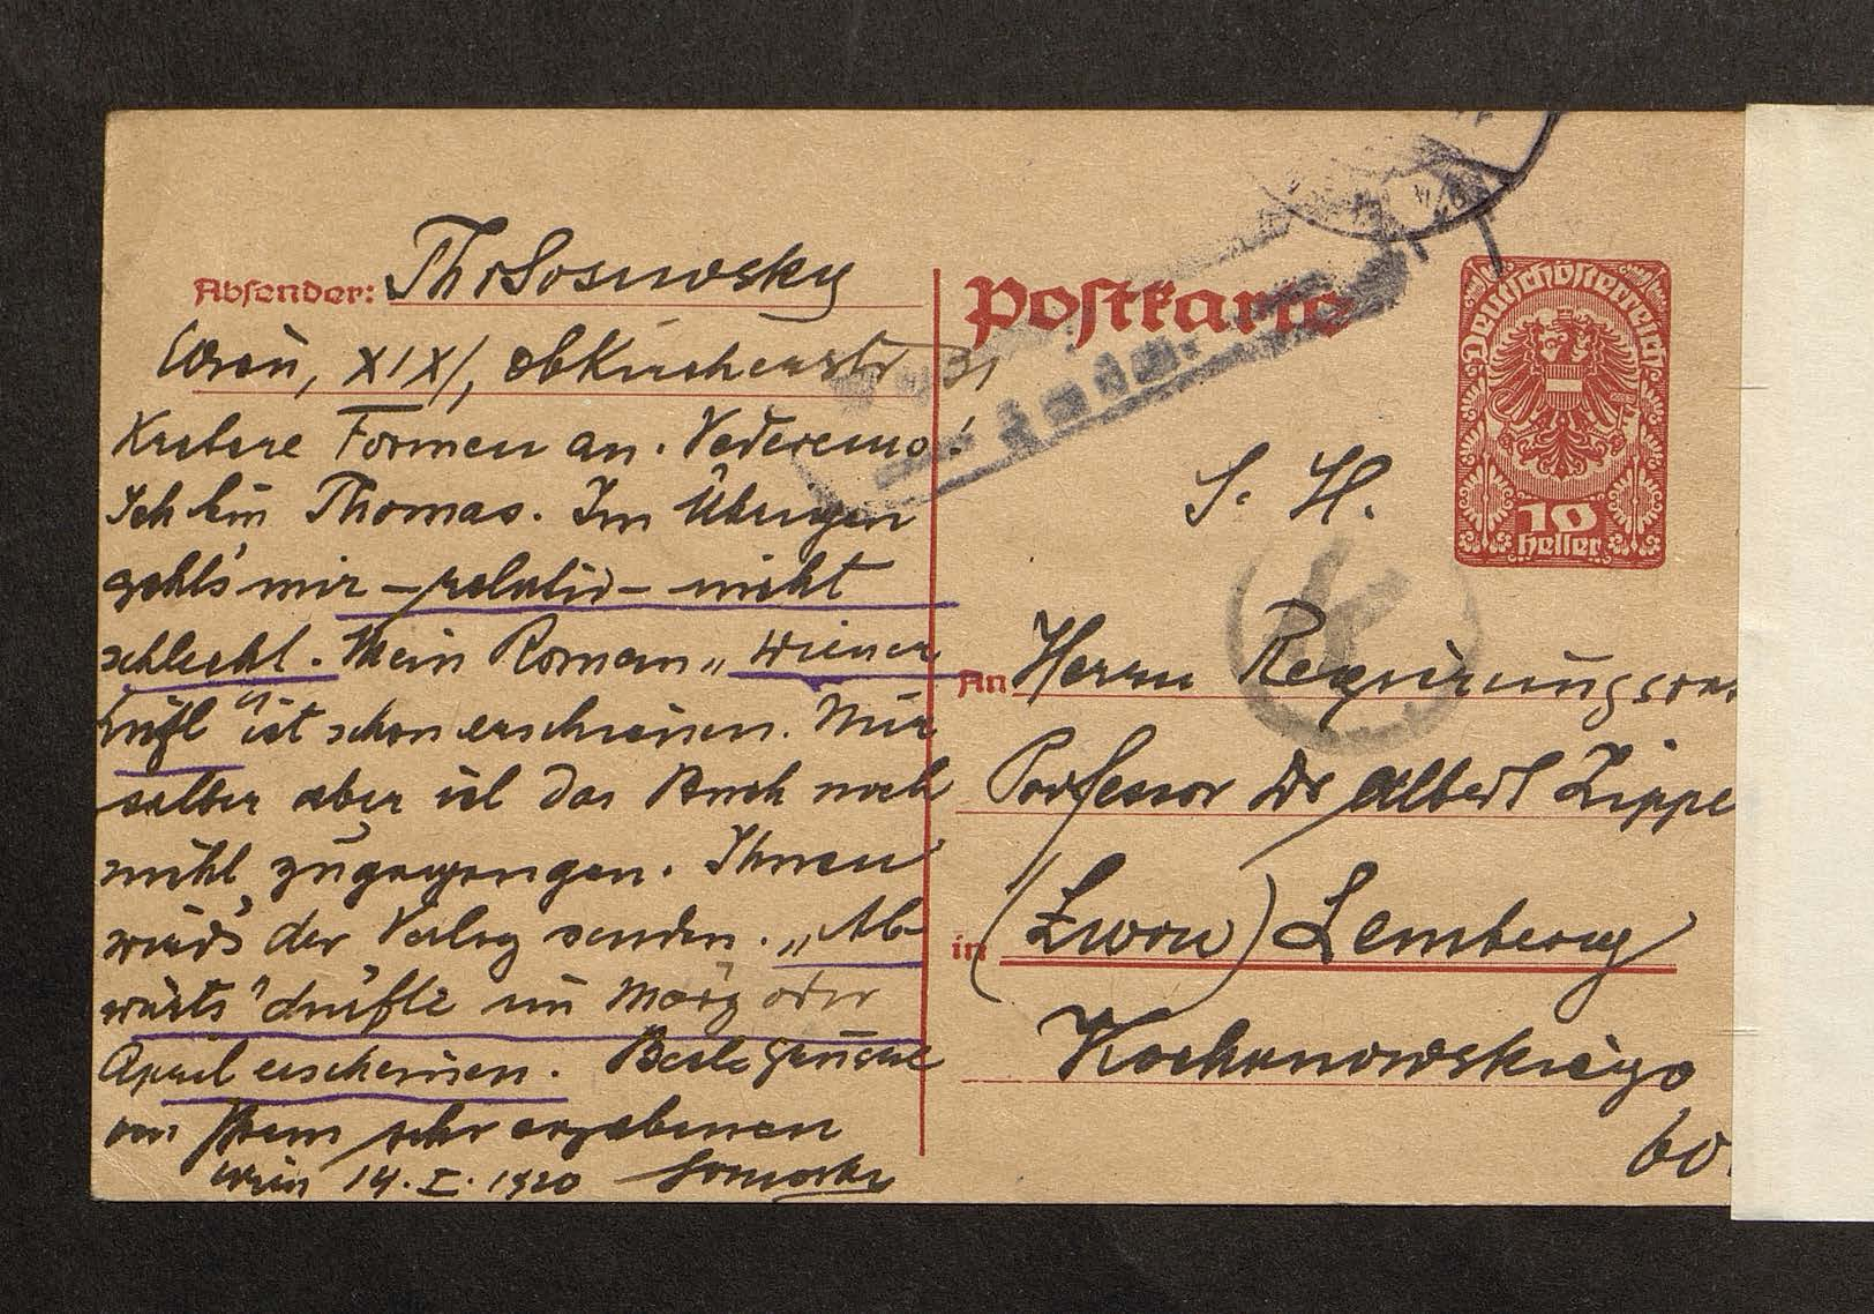 Absender: Th v Sosnosky
Wien, XIX/, ob Kirchenstr 31
Formen an. Vederemo!
Ich bin Thomas. Im Übrigen
geht's mir – relativ – nicht
schlecht. Mein Roman „Wiener
Luft" ist schon erschienen. Mir
selber aber ist das Buch noch
nicht zugegangen. Ihnen
wird's der Verlag senden. „Ab-
wärts" dürfte im März oder
April erscheinen. Beste Grüsse
von Ihrem sehr ergebenen
Wien 14. I. 1920 Sosnosky
Postkarte
Deutschösterreich
10
heller
S. H.
An Herrn Regierungsrat
Professor Dr Albert Zipper
in (Lwow) Lemberg
Kochanowskiego
60